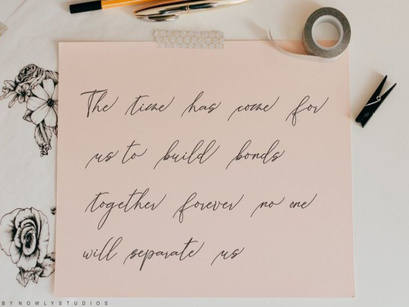 The time has come for
us to build bonds
together forever no one
will separate us
BYNOWLYSTUDIOS